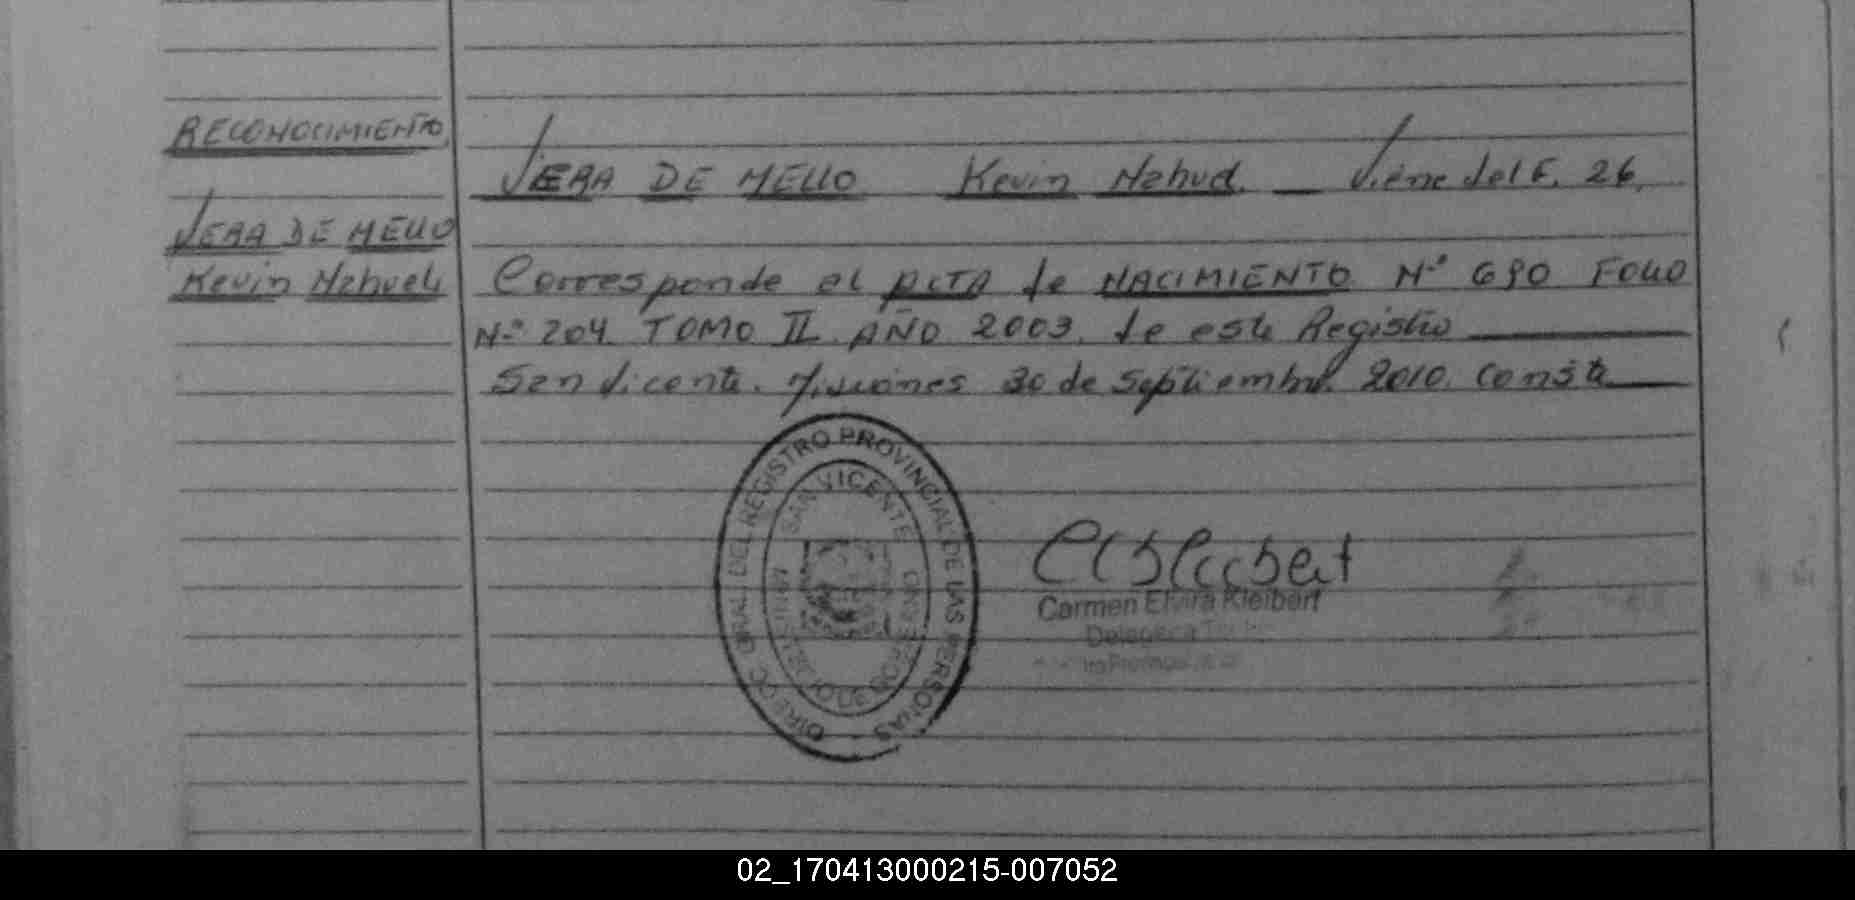 RECONOCIMIENTO
VERA DE MELLO
Kevin Nahuel
VERA DE MELLO Kevin Nahuel. — Viene del F. 26.
Corresponde al ACTA de NACIMIENTO Nº 690 FOLIO
Nº 204 TOMO II AÑO 2003. de este Registro
San Vicente. Misiones 30 de Septiembre 2010. Conste
DIRECC. GRAL. DEL REGISTRO PROVINCIAL DE LAS PERSONAS
SAN VICENTE
Carmen Elvira Kleibert
Delegada
02_170413000215-007052